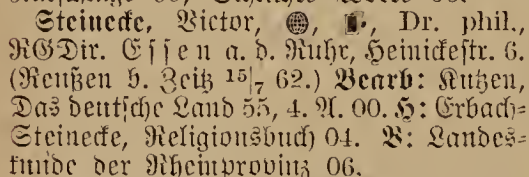 Steinecke, Victor, Dr. phil.,
RGDir. Essen a. d. Ruhr, Heinickestr. 6.
(Reußen b. Zeitz 15/7 62.) Bearb: Kutzen,
Das deutsche Land 55, 4. A. 00. H: Erbach=
Steinecke, Religionsbuch 04. V: Landes=
kunde der Rheinprovinz 06.